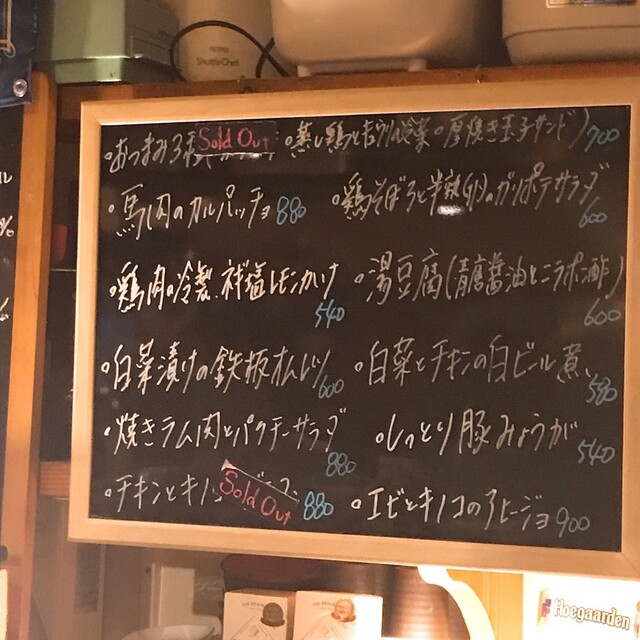 ShuttleChef
・おつまみ3 Sold Out ・蒸し鶏と ・厚焼き玉子サンド) 700
・馬肉のカルパッチョ 880
・鶏そぼろと半熟卵のガリポテサラダ 600
・鶏肉の冷製 ネギ塩レモンかけ 540
・湯豆腐(青唐醤油とニラポン酢) 600
・白菜漬けの鉄板オムレツ 600
・白菜とチキンの白ビール煮 580
・焼きラム肉とパクチーサラダ 880
・しっとり豚みょうが 540
・チキンとキノ Sold Out 880
・エビとキノコのアヒージョ 900
Hoegaarden